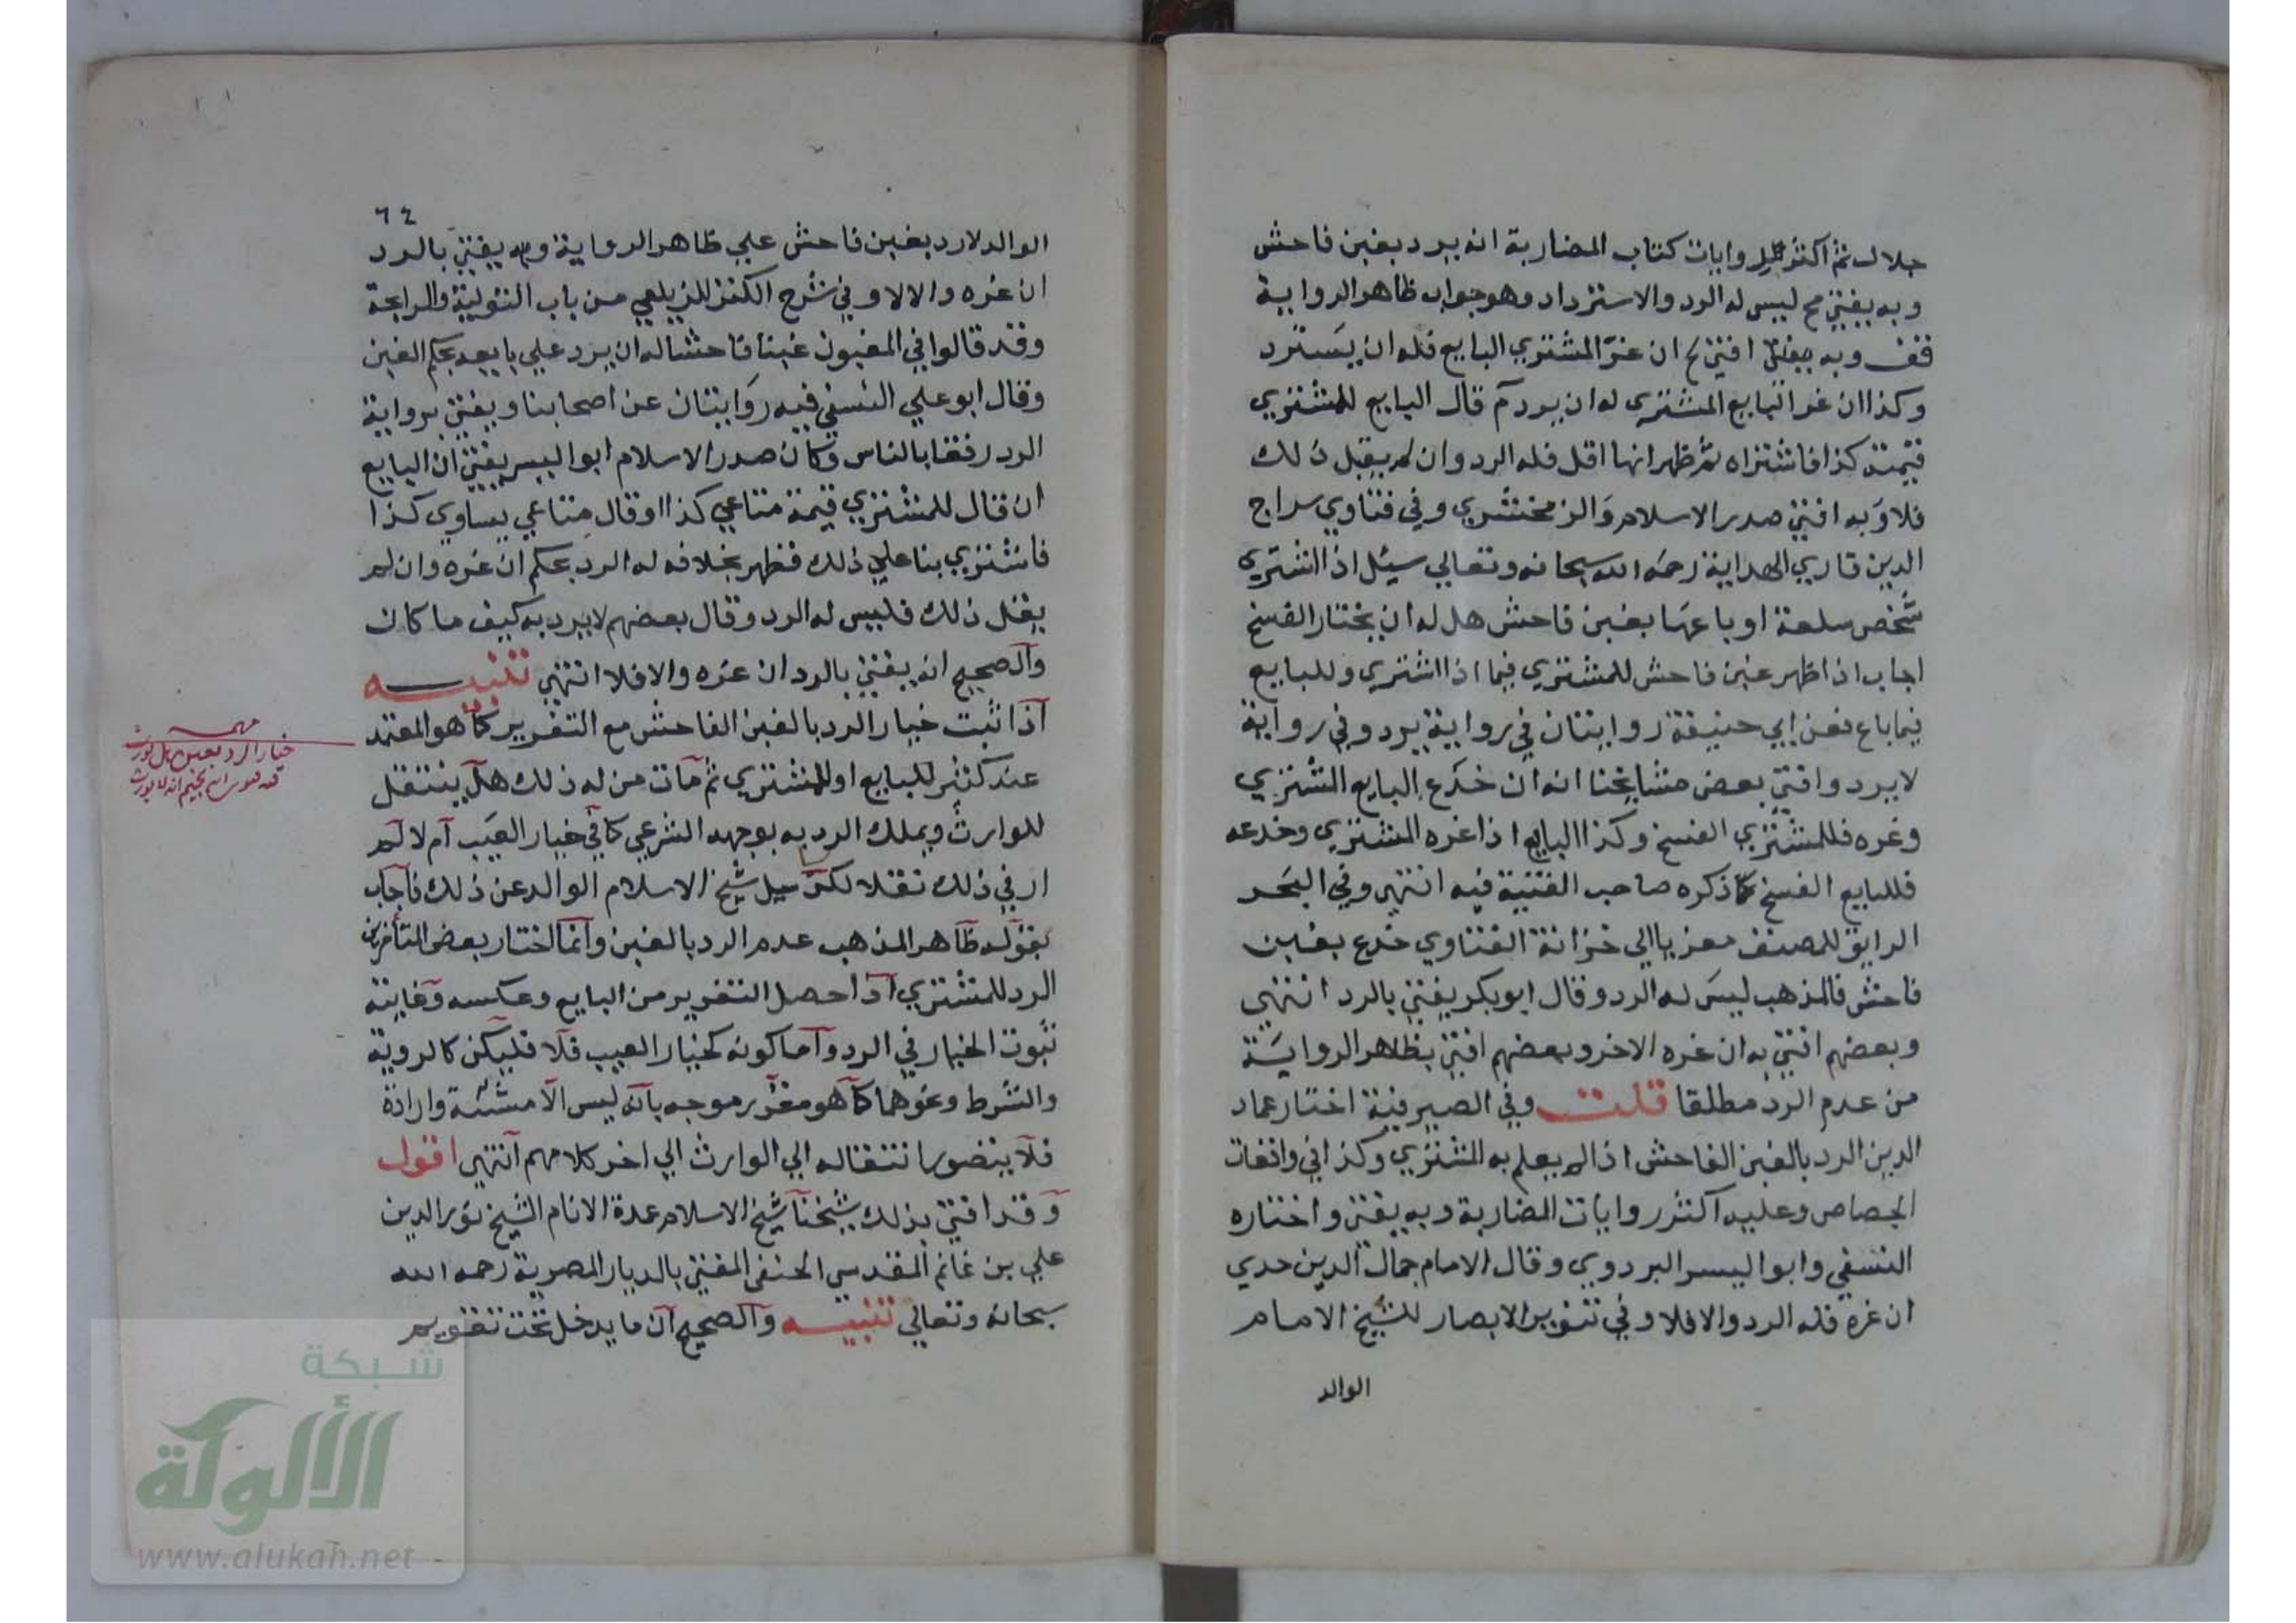 جلال ثم اكثر روايات كتاب المضاربة انه يرد بغبن فاحش
وبه يفتي مح ليس له الرد والاسترداد وهو جواب ظاهر الرواية
قف وبه افتي ان غر المشتري البايع فله ان يسترد
وكذا ان غر البايع المشتري له ان يرد م قال البايع للمشتري
قيمته كذا فاشتراه ثم ظهر انها اقل فله الرد وان لم يقل ذلك
فلا وبه افتي صدر الاسلام والزمخشري وفي فتاوي سراج
الدين قاري الهداية رحمه الله سبحانه وتعالي سيل اذا اشتري
شخص سلعة او باعها بغبن فاحش هل له ان يختار الفسخ
اجاب اذا ظهر غبن فاحش للمشتري فيما اذا اشتري وللبايع
فيما باع فعن ابي حنيفة روايتان في رواية يرد وفي رواية
لا يرد وافتي بعض مشايخنا انه ان خدع البايع المشتري
وغره فللمشتري الفسخ وكذا البايع اذا غره المشتري وخدعه
فللبايع الفسخ كما ذكره صاحب القنية فيه انتهي وفي البحر
الرايق للمصنف معزيا الي خزانة الفتاوي خدع بغبن
فاحش فالمذهب ليس له الرد وقال ابو بكر يفتي بالرد انتهي
وبعضهم افتي به ان غره الاخر وبعضهم افتي بظاهر الرواية
من عدم الرد مطلقا قلت وفي الصيرفية اختار عماد
الدين الرد بالغبن الفاحش اذا لم يعلم به المشتري وكذا في واقعات
الجصاص وعليه اكثر روايات المضاربة وبه يفتي واختاره
النسفي وابو اليسر البزدوي وقال الامام جمال الدين جدي
ان غره فله الرد والا فلا وفي تنوير الابصار للشيخ الامام
الوالد
٦٤
الوالد لا رد بغبن فاحش علي ظاهر الرواية وبه يفتي بالرد
ان غره والا لا وفي شرح الكنز للزيلعي من باب التولية والمرابحة
وقد قالوا في المغبون غبنا فاحشا له ان يرد علي بايعه بحكم الغبن
وقال ابو علي النسفي فيه روايتان عن اصحابنا ويفتي برواية
الرد رفقا بالناس وكان صدر الاسلام ابو اليسر يفتي ان البايع
ان قال للمشتري قيمة متاعي كذا او قال متاعي يساوي كذا
فاشتري بنا علي ذلك فظهر بخلافه له الرد بحكم ان غره وان لم
يقل ذلك فليس له الرد وقال بعضهم لا يرد به كيف ما كان
والصحيح انه يفتي بالرد ان غره والا فلا انتهي تنبيه
اذا ثبت خيار الرد بالغبن الفاحش مع التغرير كما هو المعتمد
عند كثير للبايع او للمشتري ثم مات من له ذلك هل ينتقل
للوارث ويملك الرد به بوجهه الشرعي كما في خيار العيب ام لا لم
ار في ذلك نقلا لكن سيل شيخ الاسلام الوالد عن ذلك فاجاب
بقوله ظاهر المذهب عدم الرد بالغبن وانما اختار بعض المتأخرين
الرد للمشتري اذا حصل التغرير من البايع وعكسه وغايته
ثبوت الخيار في الرد واما كونه كخيار العيب فلا فليكن كالروية
والشرط ونحوهما كما هو مقرر موجه بانه ليس الا مشئة وارادة
فلا يتصور انتقاله الي الوارث الي اخر كلامهم انتهي اقول
وقد افتي بذلك شيخنا شيخ الاسلام عمدة الانام الشيخ نور الدين
علي بن غانم المقدسي الحنفي المفتي بالديار المصرية رحمه الله
سبحانه وتعالي تنبيه والصحيح ان ما يدخل تحت تقويم
مهمة
خيار الرد بغبن هل يورث
شبكة
الألوكة
www.alukah.net